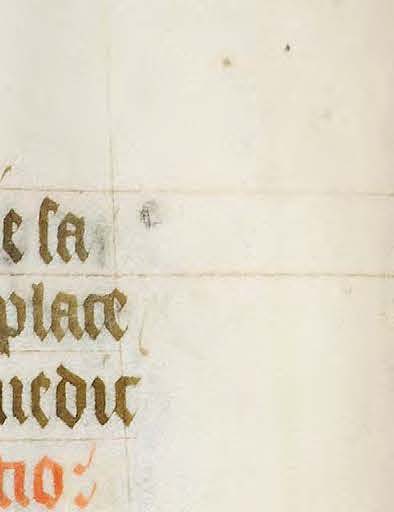 e ſa
place
nedic
tio: